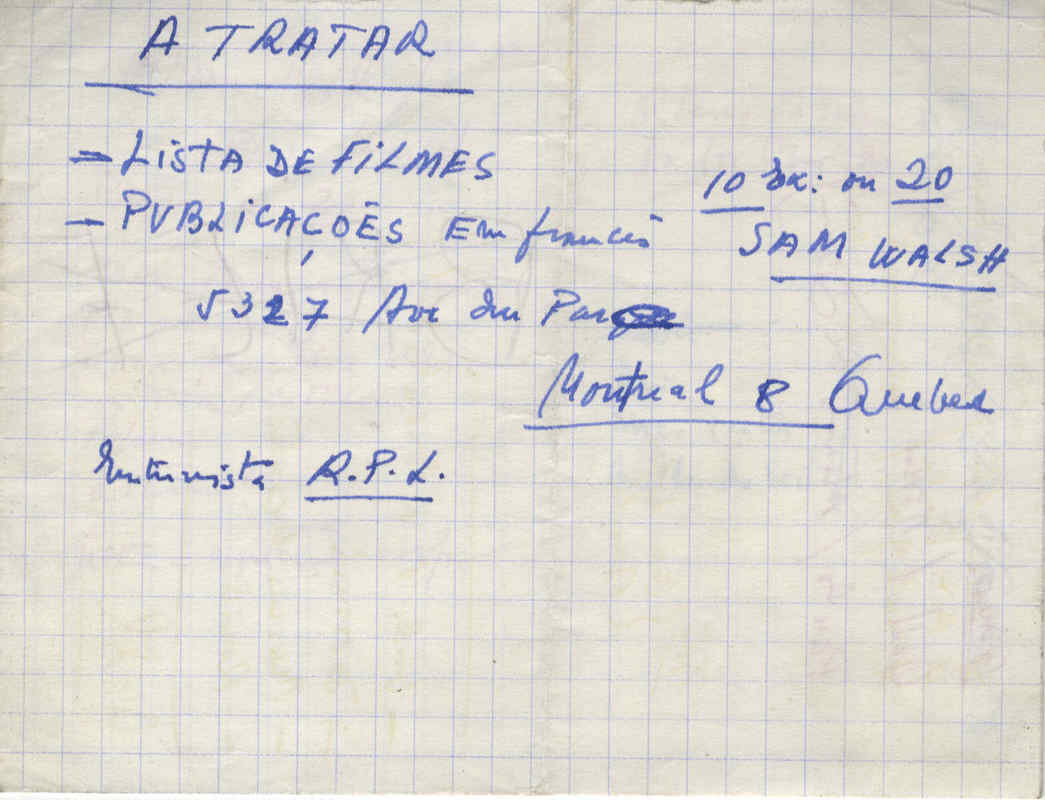 A TRATAR
- LISTA DE FILMES
10 Ex: ou 20
- PUBLICAÇÕES Em francês
SAM WALSH
5327 Av du Parc
Montreal 8 Quebec
Entrevista R.P.L.